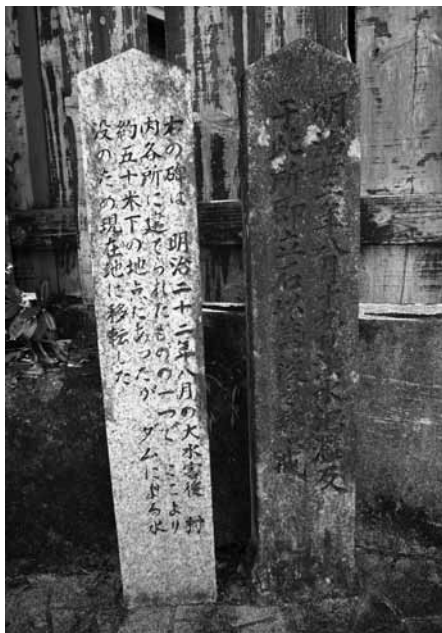 明治 年八月 水 及
于此所即立石 戒
右の碑は 明治二十二年八月の大水害後 村
内各所に建てられたものの一つで ここより
約五十米下の地点にあったが ダムによる水
没のため現在地に移転した